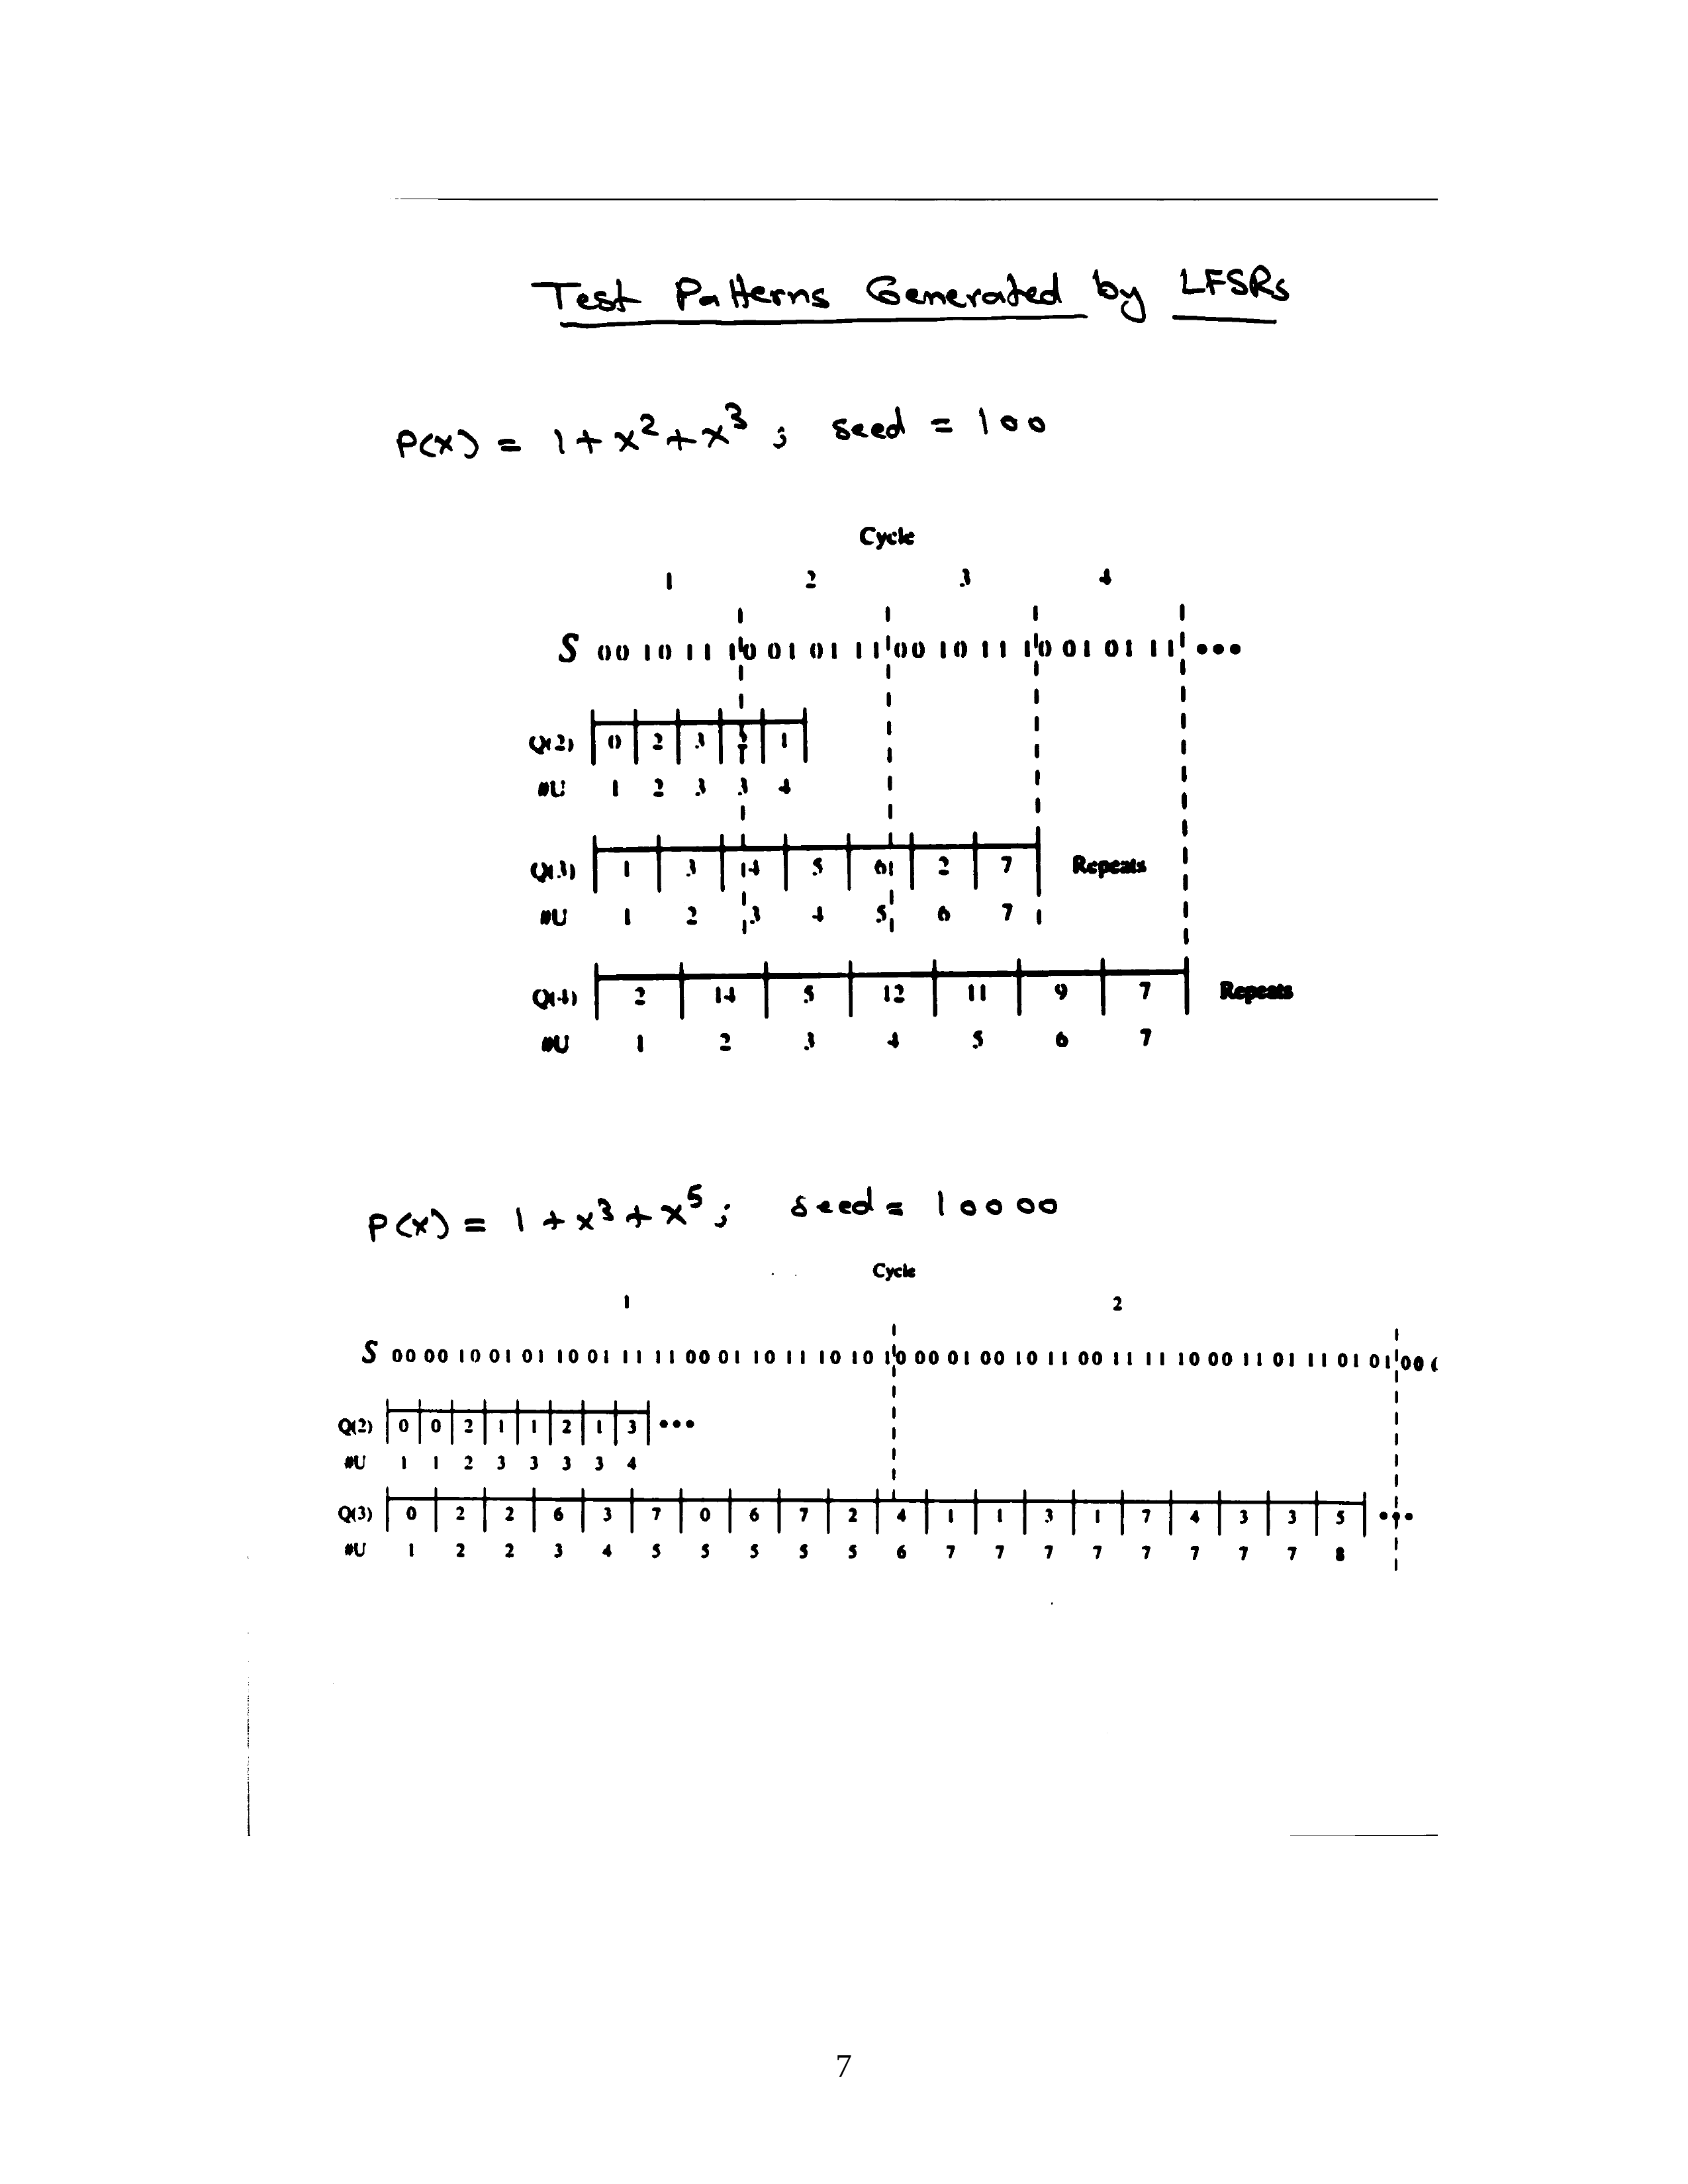 Test Patterns Generated by LFSRs
P(x) = 1 + x² + x³ ; seed = 100
Cycle
1 2 3 4
S 00 10 11 10 01 01 11 00 10 11 10 01 01 11 •••
Q(2) 0 2 3 1
#U 1 2 3 3 4
Q(3) 1 3 4 5 6 2 7 Repeats
#U 1 2 3 4 5 6 7
Q(4) 2 14 5 12 11 9 7 Repeats
#U 1 2 3 4 5 6 7
P(x) = 1 + x³ + x⁵ ; seed = 10000
Cycle
1 2
S 00 00 10 01 01 10 01 11 11 00 01 10 11 10 10 10 00 01 00 10 11 00 11 11 10 00 11 01 11 01 01 00
Q(2) 0 0 2 1 1 2 1 3 •••
#U 1 1 2 3 3 3 3 4
Q(3) 0 2 2 6 3 7 0 6 7 2 4 1 1 3 1 7 4 3 3 5 •••
#U 1 2 2 3 4 5 5 5 5 5 6 7 7 7 7 7 7 7 7 8
7